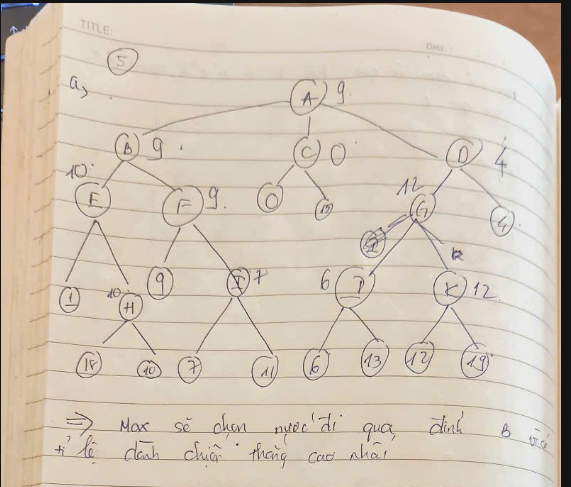 TITLE:
DATE:
5
a,
A 9
B 9 C 0 D 4
10 E F 9 0 12 G 4
1 10 H 9 I 7 6 J K 12
18 10 7 11 6 13 12 19
⇒ Max sẽ chọn nước đi qua đỉnh B vì có
tỉ lệ dành chiến thắng cao nhất